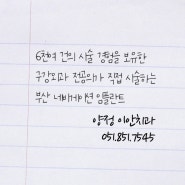 6천여 건의 시술 경험을 보유한
구강외과 전공의가 직접 시술하는
부산 네비게이션 임플란트
양정 이안치과
051.851.7545